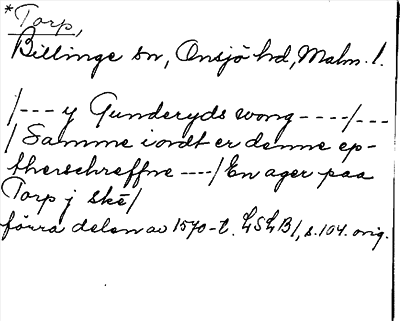 *Torp,
Billinge sn, Onsjö hd, Malm. l.
/--- y Gunderyds wong ----/---
/ Samme iordt er denne ep-
therschreffne ---/ En ager paa
Torp j skē/
förra delen av 1570-t. LSLB/, s. 104. orig.